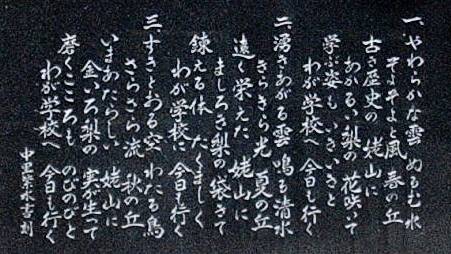 一、やわらかな雲 ぬるむ水
そよそよと風 春の丘
古き歴史の 姥山に
あかるい梨の 花咲いて
学ぶ姿も いきいきと
わが学校へ 今日も行く
二、湧きあがる雲 鳴る清水
きらきらら光 夏の丘
遠く栄えた 姥山に
ましろき梨の 袋きて
鍊える体 たくましく
わが学校に 今日も行く
三、すきとおる空 わたる鳥
さらさら流 秋の丘
いまあたらしい 姥山に
金いろ梨の 実が生って
磨くこころも のびのびと
わが学校へ 今日も行く